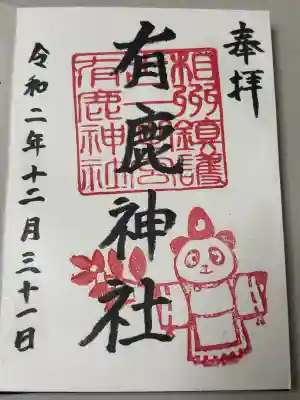 奉拝
相模鎮護
有鹿神社
有鹿神社
令和二年十二月三十一日